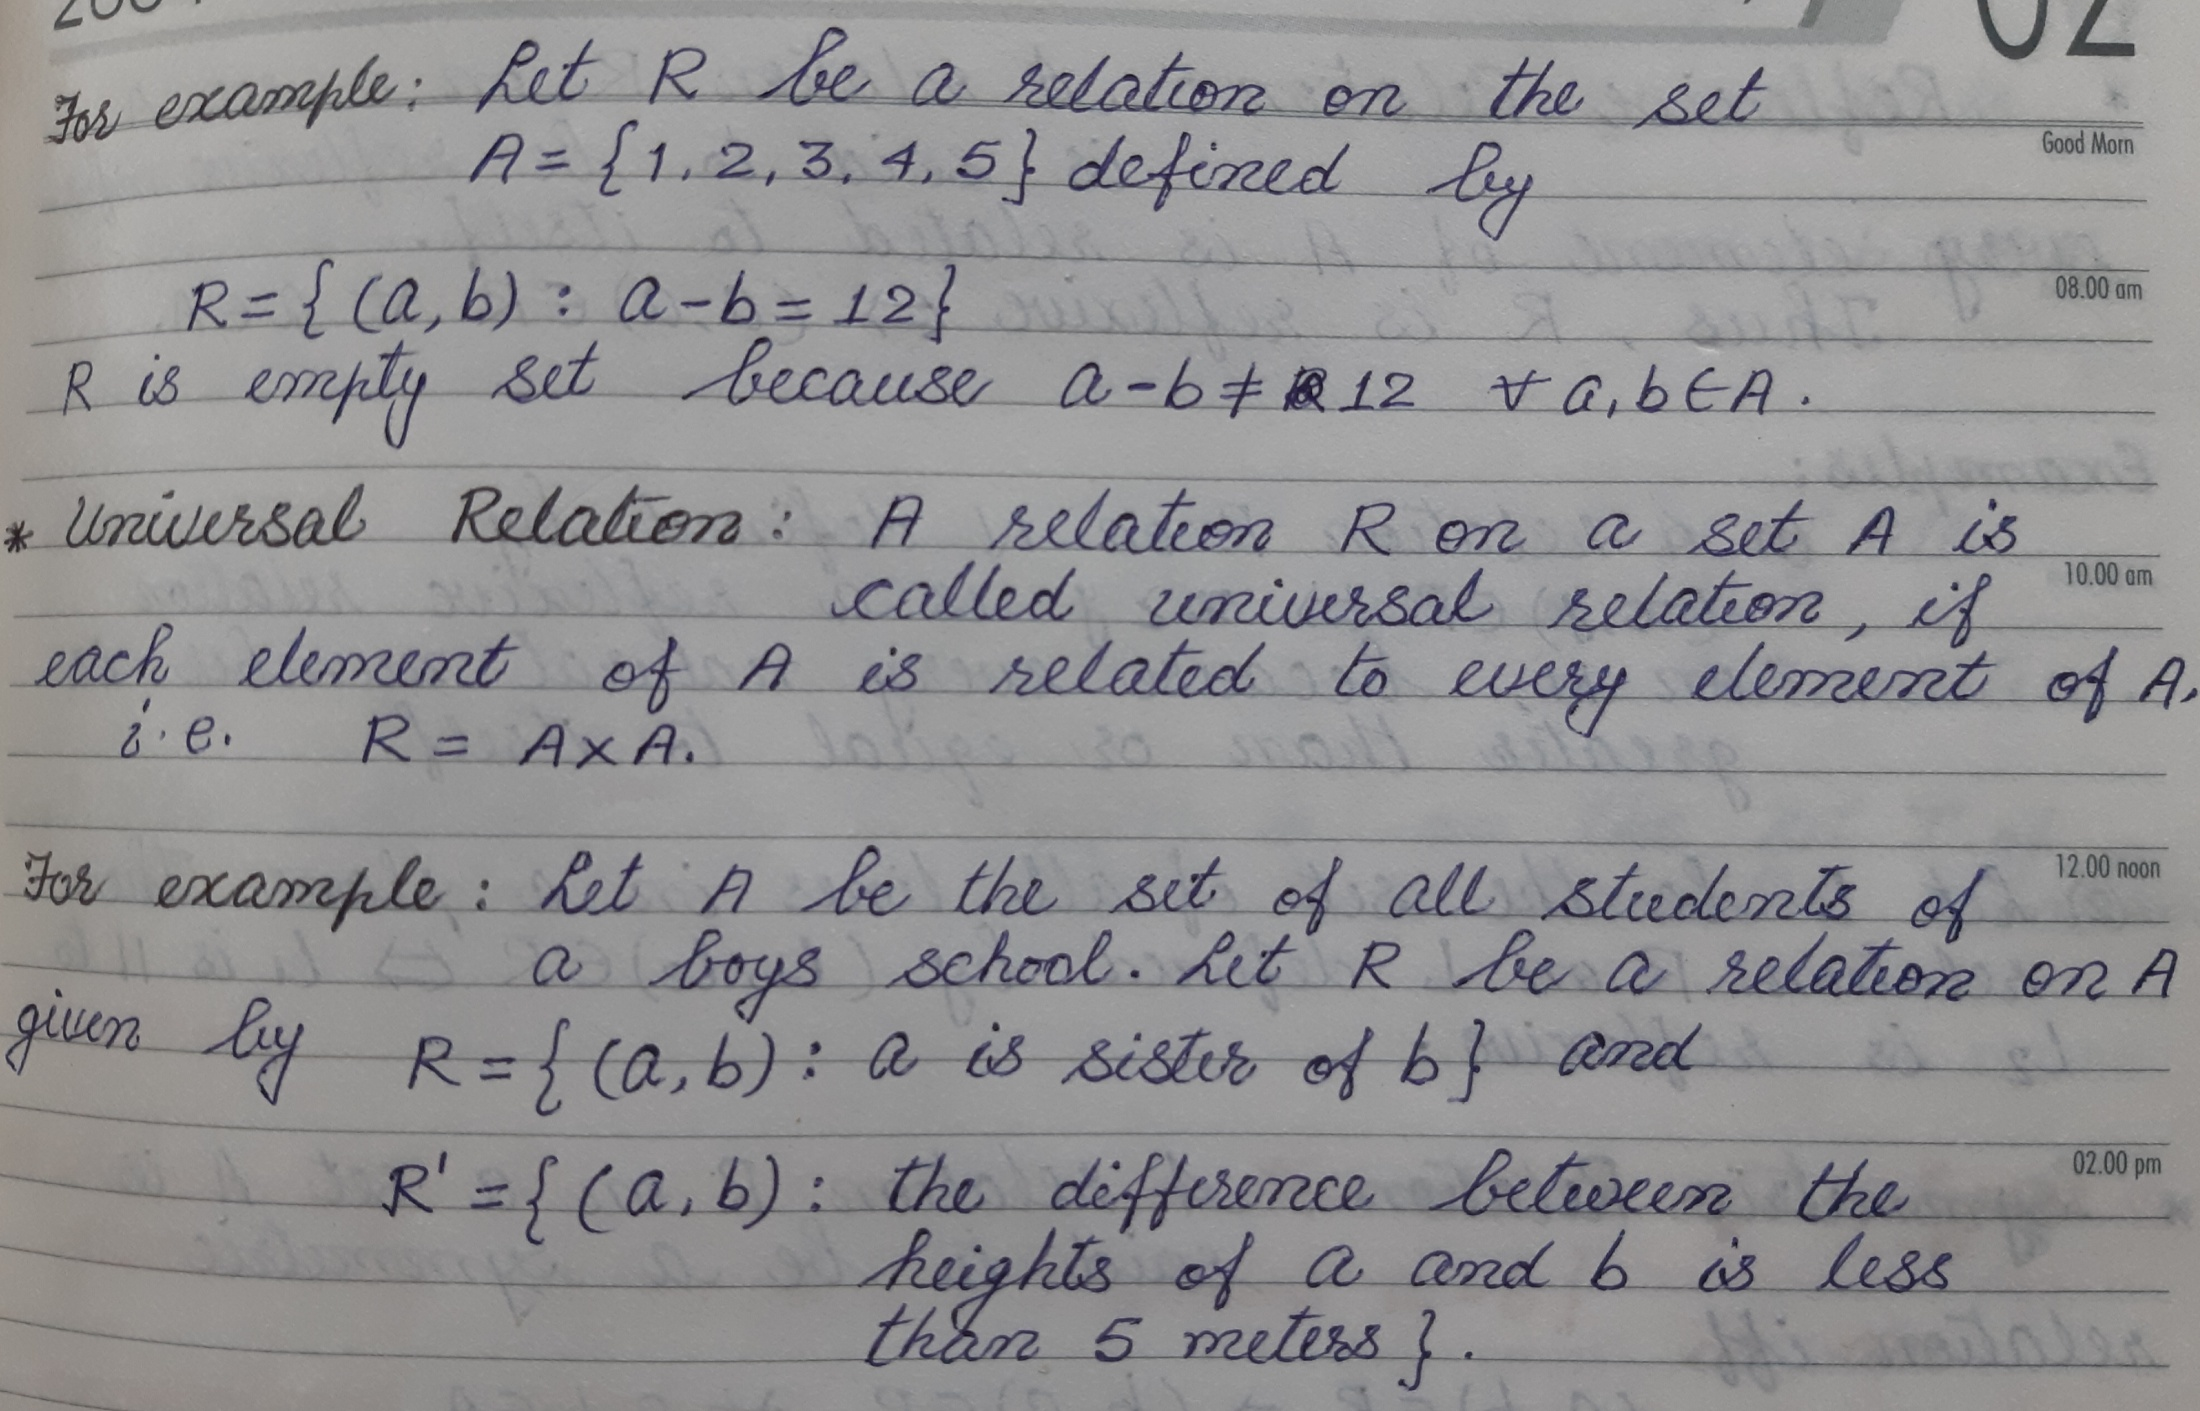 02
For example: Let R be a relation on the set
A = {1, 2, 3, 4, 5} defined by
Good Morn
R = { (a, b) : a - b = 12}
08.00 am
R is empty set because a - b ≠ 12 ∀ a, b ∈ A.
* Universal Relation: A relation R on a set A is
10.00 am
called universal relation, if
each element of A is related to every element of A,
i.e. R = A × A.
12.00 noon
For example: Let A be the set of all students of
a boys school. Let R be a relation on A
given by R = { (a, b) : a is sister of b} and
02.00 pm
R' = { (a, b) : the difference between the
heights of a and b is less
than 5 meters }.